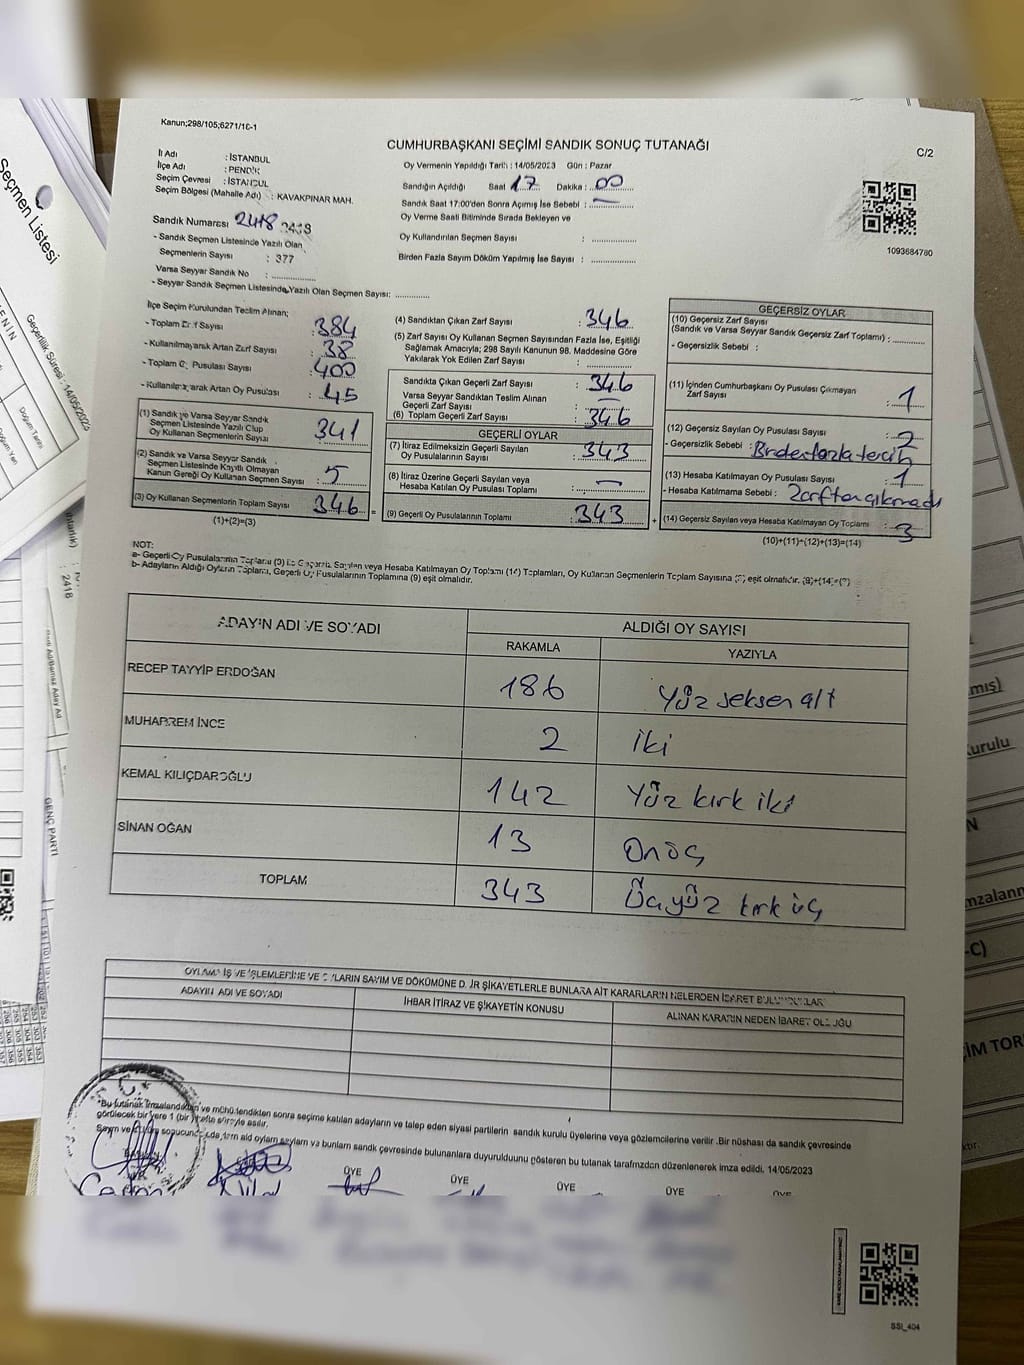 Kanun;298/105;6271/16-1
CUMHURBAŞKANI SEÇİMİ SANDIK SONUÇ TUTANAĞI
C/2
İl Adı : İSTANBUL
İlçe Adı : PENDİK
Seçim Çevresi : İSTANBUL
Seçim Bölgesi (Mahalle Adı) : KAVAKPINAR MAH.
Oy Vermenin Yapıldığı Tarih : 14/05/2023 Gün : Pazar
Sandığın Açıldığı Saat 17 Dakika : 00
Sandık Saat 17:00'den Sonra Açımış İse Sebebi :
Oy Verme Saati Bitiminde Sırada Bekleyen ve
Oy Kullandırılan Seçmen Sayısı :
Birden Fazla Sayım Döküm Yapılmış İse Sayısı :
1093684760
Sandık Numarası 2418
- Sandık Seçmen Listesinde Yazılı Olan
Seçmenlerin Sayısı : 377
Varsa Seyyar Sandık No :
- Seyyar Sandık Seçmen Listesinde Yazılı Olan Seçmen Sayısı:
İlçe Seçim Kurulundan Teslim Alınan;
- Toplam Zarf Sayısı : 384
- Kullanılmayarak Artan Zarf Sayısı : 38
- Toplam Oy Pusulası Sayısı : 400
- Kullanılmayarak Artan Oy Pusulası : 45
(1) Sandık ve Varsa Seyyar Sandık
Seçmen Listesinde Yazılı Olup
Oy Kullanan Seçmenlerin Sayısı : 341
(2) Sandık ve Varsa Seyyar Sandık
Seçmen Listesinde Kayıtlı Olmayan
Kanun Gereği Oy Kullanan Seçmen Sayısı : 5
(3) Oy Kullanan Seçmenlerin Toplam Sayısı : 346 =
(1)+(2)=(3)
(4) Sandıktan Çıkan Zarf Sayısı : 346
(5) Zarf Sayısı Oy Kullanan Seçmen Sayısından Fazla İse, Eşitliği
Sağlamak Amacıyla; 298 Sayılı Kanunun 98. Maddesine Göre
Yakılarak Yok Edilen Zarf Sayısı :
Sandıkta Çıkan Geçerli Zarf Sayısı : 346
Varsa Seyyar Sandıktan Teslim Alınan
Geçerli Zarf Sayısı : —
(6) Toplam Geçerli Zarf Sayısı : 346
GEÇERLİ OYLAR
(7) İtiraz Edilmeksizin Geçerli Sayılan
Oy Pusulalarının Sayısı : 343
(8) İtiraz Üzerine Geçerli Sayılan veya
Hesaba Katılan Oy Pusulası Toplamı : —
(9) Geçerli Oy Pusulalarının Toplamı : 343 +
GEÇERSİZ OYLAR
(10) Geçersiz Zarf Sayısı
(Sandık ve Varsa Seyyar Sandık Geçersiz Zarf Toplamı) :
- Geçersizlik Sebebi :
(11) İçinden Cumhurbaşkanı Oy Pusulası Çıkmayan
Zarf Sayısı : 1
(12) Geçersiz Sayılan Oy Pusulası Sayısı : 2
- Geçersizlik Sebebi : Birden fazla tercih
(13) Hesaba Katılmayan Oy Pusulası Sayısı : 1
- Hesaba Katılmama Sebebi : Zarftan çıkmadı
(14) Geçersiz Sayılan veya Hesaba Katılmayan Oy Toplamı : 3
(10)+(11)+(12)+(13)=(14)
NOT:
a- Geçerli Oy Pusulalarının Toplamı (9) ile Geçersiz Sayılan veya Hesaba Katılmayan Oy Toplamı (14) Toplamları, Oy Kullanan Seçmenlerin Toplam Sayısına (3) eşit olmalıdır. (9)+(14)=(3)
b- Adayların Aldığı Oyların Toplamı, Geçerli Oy Pusulalarının Toplamına (9) eşit olmalıdır.
ADAYIN ADI VE SOYADI
ALDIĞI OY SAYISI
RAKAMLA YAZIYLA
RECEP TAYYİP ERDOĞAN 186 Yüz seksen altı
MUHARREM İNCE 2 iki
KEMAL KILIÇDAROĞLU 142 Yüz kırk iki
SİNAN OĞAN 13 Onüç
TOPLAM 343 Üçyüz kırk üç
OYLAMA İŞ VE İŞLEMLERİNE VE OYLARIN SAYIM VE DÖKÜMÜNE DAİR ŞİKAYETLERLE BUNLARA AİT KARARLARIN NELERDEN İBARET BULUNDUKLARI
ADAYIN ADI VE SOYADI İHBAR İTİRAZ VE ŞİKAYETİN KONUSU ALINAN KARARIN NEDEN İBARET OLDUĞU
*Bu tutanak imzalandıktan ve mühürlendikten sonra seçime katılan adayların ve talep eden siyasi partilerin sandık kurulu üyelerine veya gözlemcilerine verilir .Bir nüshası da sandık çevresinde
görülecek bir yere 1 (bir) hafta süreyle asılır.
sandık çevresinde bulunanlara duyurulduunu gösteren bu tutanak tarafmzdan düzenlenerek imza edildi. 14/05/2023
ÜYE ÜYE ÜYE ÜYE ÜYE
SSİ_404
Seçmen Listesi
Geçerlilik Süresi : 14/05/2023
Doğum Tarihi
Doğum Yeri
2418
GENÇ PARTİ